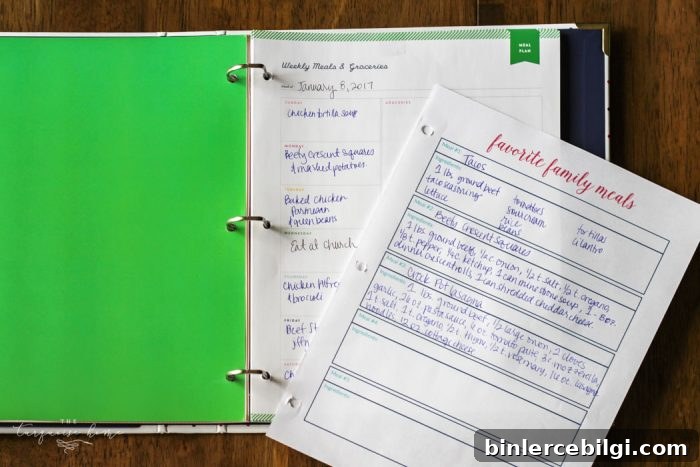 MEAL
PLAN
Weekly Meals & Groceries
January 8, 2017
SUNDAY
GROCERIES
Chicken tortilla soup
MONDAY
Beefy Crescent Squares
& mashed potatoes
TUESDAY
Baked Chicken
Parmesan
& green beans
WEDNESDAY
Eat at church
THURSDAY
Chicken
& brocoli
FRIDAY
Beef
favorite family meals
Meal #1: Tacos
Ingredients:
1 lbs ground beef
taco seasoning
lettuce
tomatoes
sour cream
rice
beans
tortillas
cilantro
Meal #2: Beefy Crescent Squares
Ingredients:
1 lbs ground beef, 1/4 c onion, 1/2 t salt, 1/2 t oregano
1/4 t pepper, 1/4 c ketchup, 1 can
crescent rolls, 1 can shredded cheddar cheese
Meal #3: Crock Pot Lasagna
Ingredients:
1 lbs. ground beef, 1/2 large onion, 2 cloves
garlic, 24 oz pasta sauce, 6 oz tomato paste,
1 t salt, 1 t oregano, 1/2 t thyme, 1/2 t rosemary, 16 oz.
noodles, 15 oz cottage cheese
Meal #4:
Ingredients:
Meal #5:
Ingredients:
THE
turquoise home
binlercebilgi.com